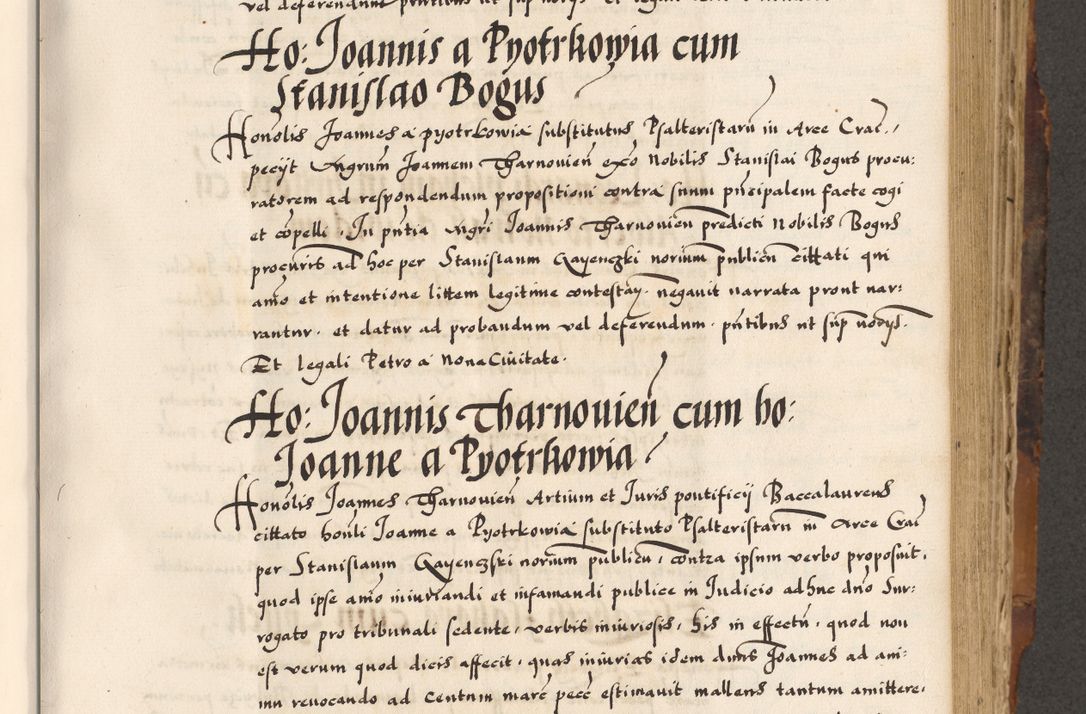 vel deferendum
Ho: Joannis a Pyotrkowia cum
Stanislao Bogus
Honolis Joannes a pyotrkowia substitutus Psalteristaru in Arce Crac.,
pecijt Mgrum Joannem Tharnovien exco Nobilis Stanislai Bogus procu:
ratorem ad respondendum propositioni contra suum pncipalem facte cogi
et copelli. In pntia Mgri Joannis Tharnovien predicti Nobilis Bogus
procuris ad hoc per Stanislaum Gayenczki norium publicu cittati qui
amo et intentione littem legitime contestay. negavit narrata prout nar:
rantur. et datur ad probandum vel deferendum. pntibus ut sup nocys.
Et legali Petro a Nona Civitate.
Ho: Joannis Tharnovien cum ho:
Joanne a Pyotrkowia
Honolis Joannes Tharnovien Artium et Juris pontificij Baccalaureus
cittato honli Joanne a Pyotrkowia substituto Psalteristaru in Arce Crac
per Stanislaum Gayenczki norium publicu, contra ipsum verbo proposuit,
quod ipse amo iniuriandi et infamandi publice in Judicio adhuc dno Sur:
rogato pro tribunali sedente, verbis iniuriosis, his in effectu, quod non
est verum quod dicis affecit, quas iniurias idem dnus Joannes ad ani:
mu revocando ad Centum marc pecc estimavit mallens tantum amittere,